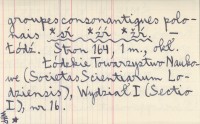 groupes consonantiques polo-
nais *sŕ *źŕ *žŕ —
Łódź. Stron 164, 1 m., okł.
Łódzkie Towarzystwo Nauko-
we (Societas Scientiarum Lo-
dziensis), Wydział I (Sectio
I), nr 16.